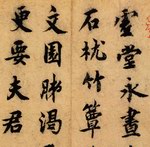 虛堂永晝
石枕竹簟
文園肺渴
更要夫君